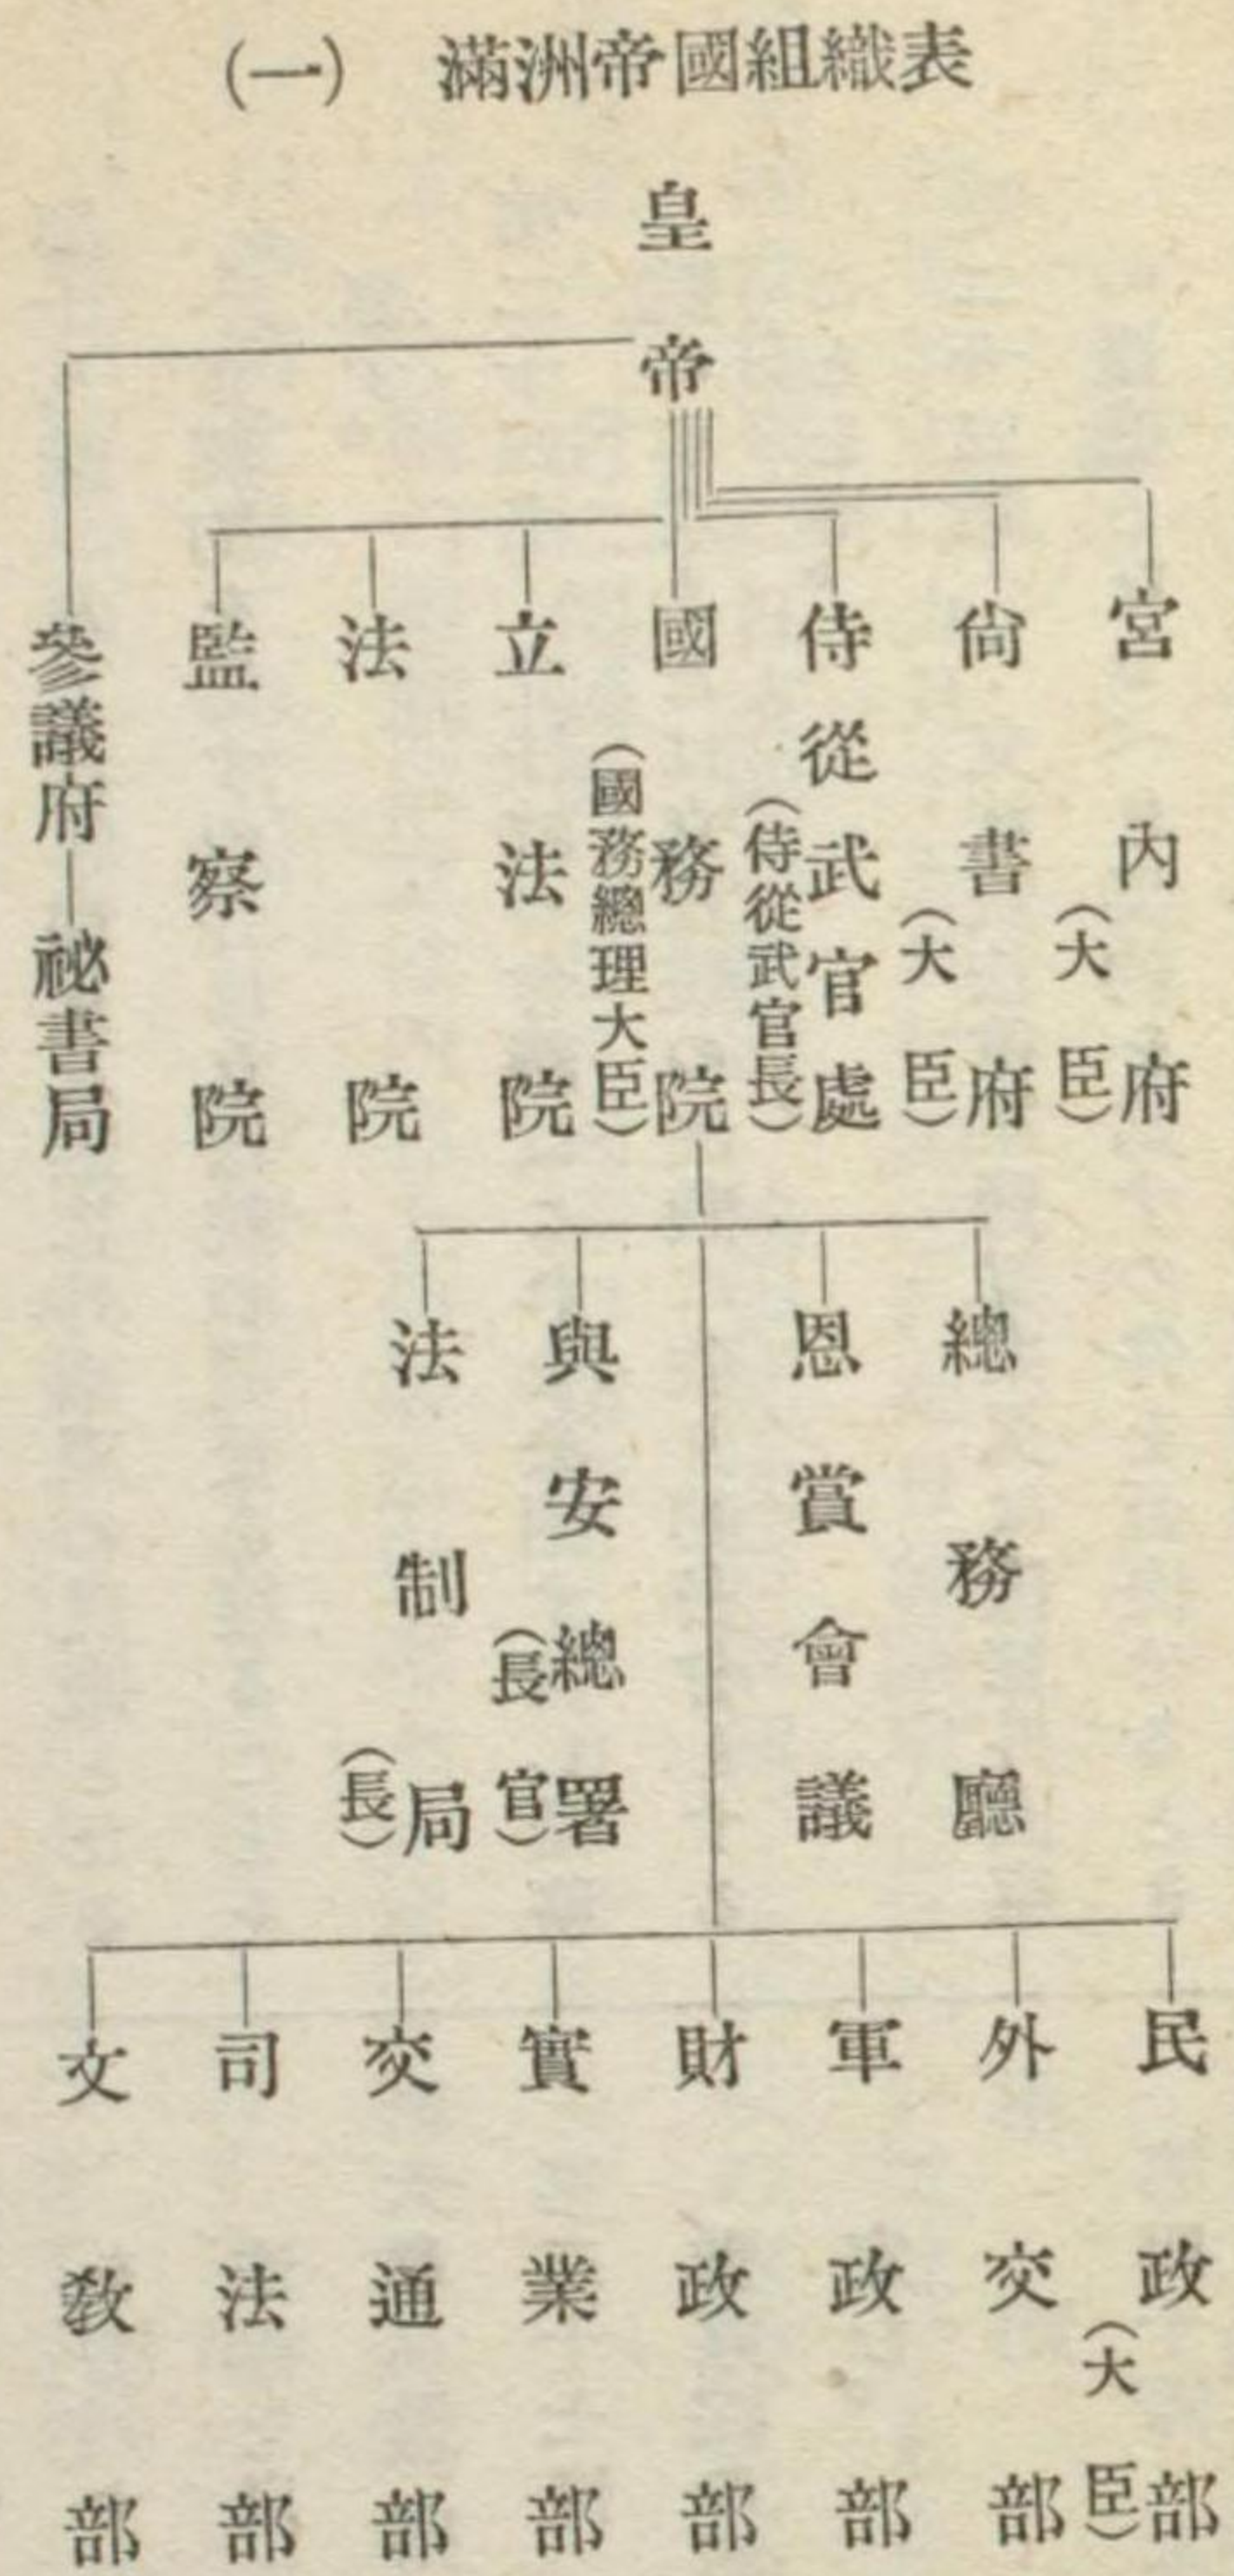 (一) 滿洲帝國組織表
皇帝
宮內府
(大臣)
尙書府
(大臣)
侍從武官處
(侍從武官長)
國務院
(國務總理大臣)
立法院
法院
監察院
參議府—祕書局
總務廳
恩賞會議
與安總署
(長官)
法制局
(長)
民政部
(大臣)
外交部
軍政部
財政部
實業部
交通部
司法部
文敎部